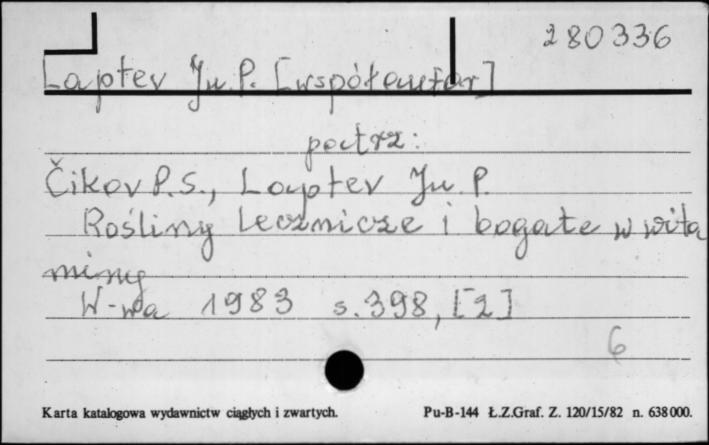 280336
Laptev Ju. P. [współautor]
patrz:
Čikov P.S., Laptev Ju. P.
Rośliny lecznicze i bogate w wita
miny
W-wa 1983 s. 398, [2]
6
Karta katalogowa wydawnictw ciągłych i zwartych. Pu-B-144 Ł.Z.Graf. Z. 120/15/82 n. 638000.